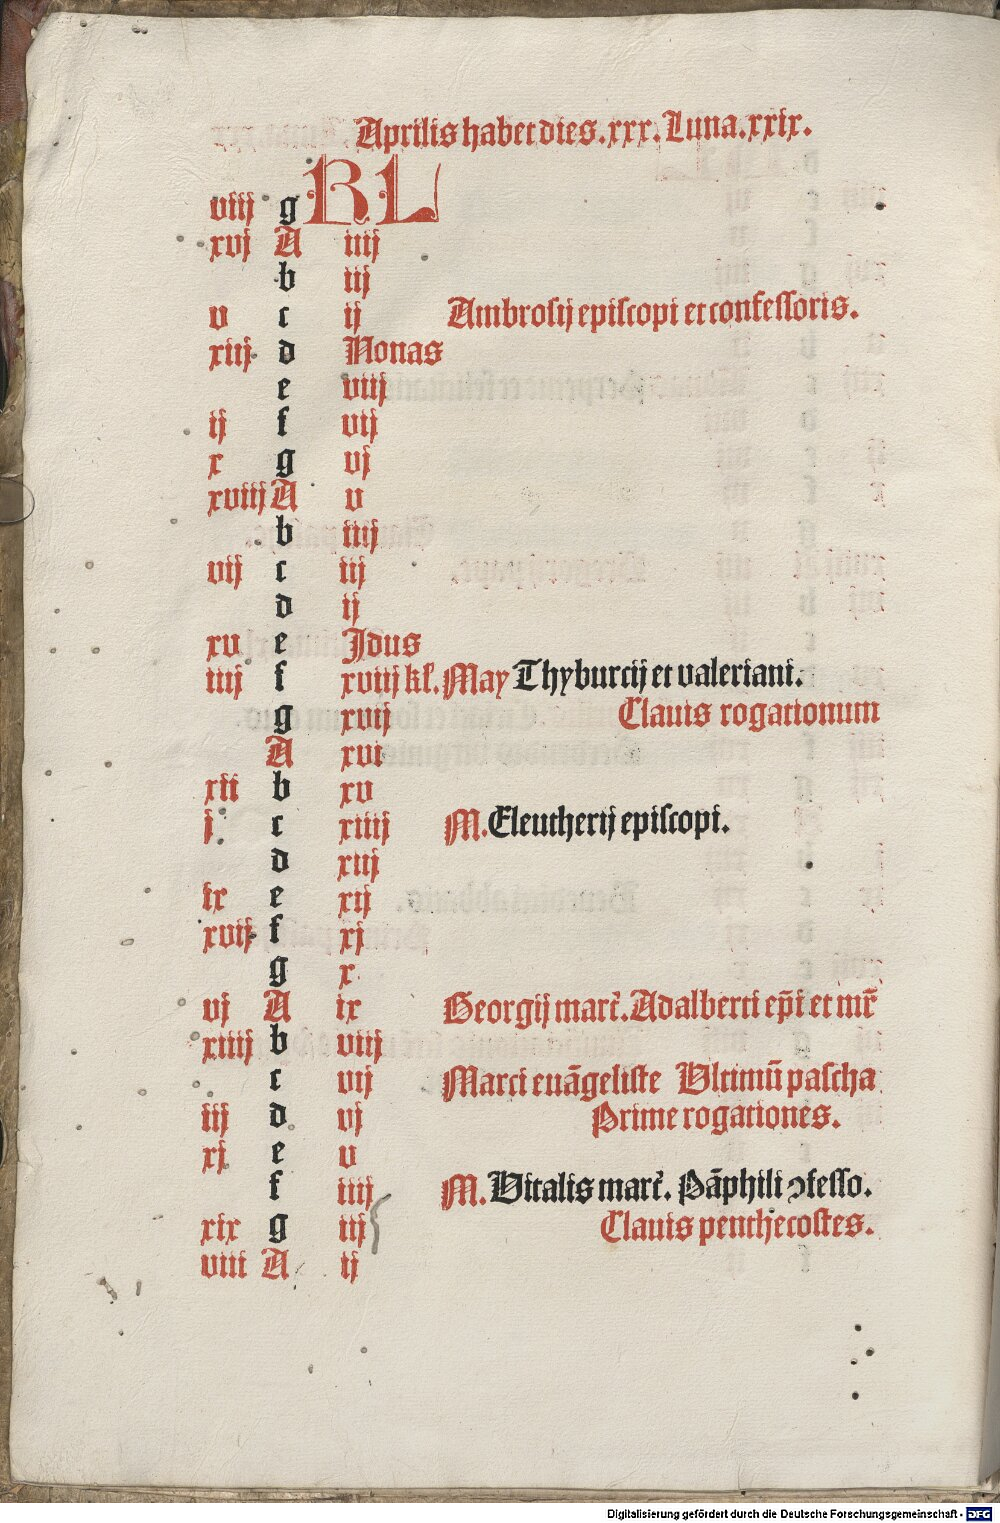 Aprilis habet dies.xxx.Luna.xxix.
viij g KL
xvj A iiij
b iij
v c ij Ambrosij episcopi et confessoris.
xiij d Nonas
e viij
ij f vij
x g vj
xviij A v
b iiij
vij c iij
d ij
xv e Jdus
iiij f xviij kł.May Thyburcij et valeriani.
g xvij Clauis rogationum
A xvi
xii b xv
j c xiiij M.Eleutherij episcopi.
d xiij
ix e xij
xvij f xj
g x
vj A ix Georgij mart̃.Adalberti ep̃i et mr̃
xiiij b viij
c vij Marci euãgeliste Vltimũ pascha
iij d vj Prime rogationes.
xj e v
f iiij M.Vitalis mart̃. Pãphili ꝯfesso.
xix g iij Clauis penthecostes.
viii A ij
Digitalisierung gefördert durch die Deutsche Forschungsgemeinschaft - DFG